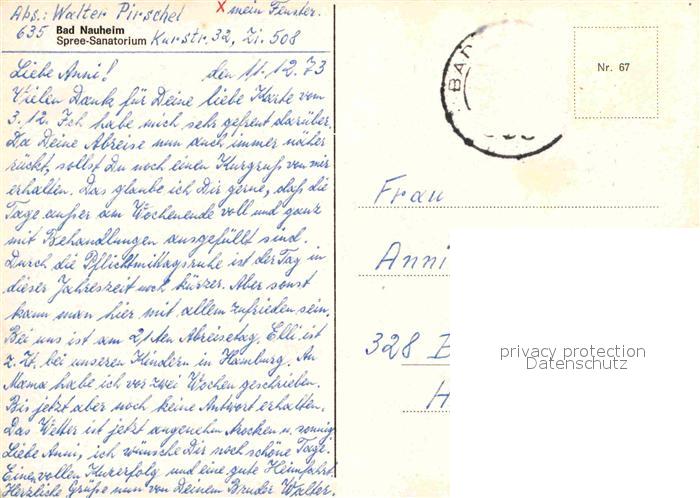 Abs.: Walter Pirschel x mein Fenster.
635 Bad Nauheim
Spree-Sanatorium Kurstr. 32, Zi. 508
Liebe Anni! den 11.12.73
Vielen Dank für Deine liebe Karte vom
3.12. Ich habe mich sehr gefreut darüber.
Da Deine Abreise nun auch immer näher
rückt, sollst Du noch einen Kurgruß von mir
erhalten. Das glaube ich Dir gerne, daß die
Tage außer am Wochenende voll und ganz
mit Behandlungen ausgefüllt sind.
Durch die Pflichtmittagsruhe ist der Tag in
dieser Jahreszeit noch kürzer. Aber sonst
kann man hier mit allem zufrieden sein.
Bei uns ist am 21ten Abreisetag. Elli ist
z. Zt. bei unseren Kindern in Hamburg. An
Mama habe ich vor zwei Wochen geschrieben.
Bis jetzt aber noch keine Antwort erhalten.
Das Wetter ist jetzt angenehm trocken u. sonnig
Liebe Anni, ich wünsche Dir noch schöne Tage.
Einen vollen Kurerfolg und eine gute Heimfahrt.
Herzliche Grüße nun von Deinem Bruder Walter.
BAD
Nr. 67
Frau
Anni
328 B
H
privacy protection
Datenschutz